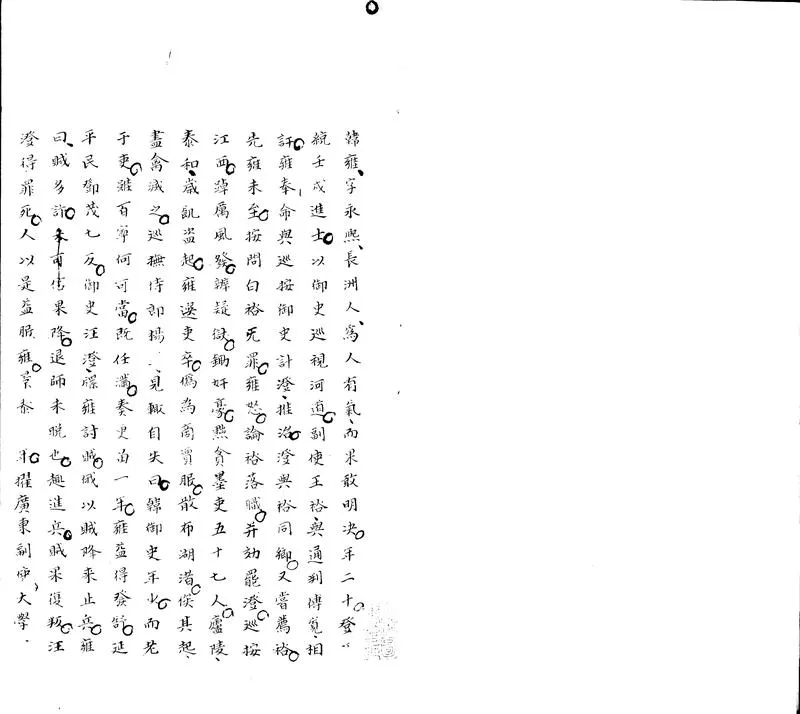 韓雍字永熙長洲人為人有氣而果敢明决年二十登
統壬戌進士以御史巡視河道副使王裕與通判傅寬相
訐雍奉命與巡按御史計澄推治澄與裕同鄉又嘗薦裕
先雍未至按問白裕死罪雍怒論裕落職并劾罷澄巡按
江西踔厲風發辨疑獄鋤奸豪黜貪墨吏五十七人廬陵
泰和歲飢盗起雍選吏卒偽為商賈服散布湖渚俟其起
盡禽滅之巡撫侍郎楊見輒自失曰韓御史年少而老
于吏雖百寧何可當既任滿奏更留一年雍益得發舒延
平民鄧茂七反御史汪澄牒雍討賊賊以賊降來止兵雍
曰賊多詐未可信果降退師未晚也趣進兵賊果復叛汪
澄得罪死人以是益服雍景泰 年擢廣東副使大學